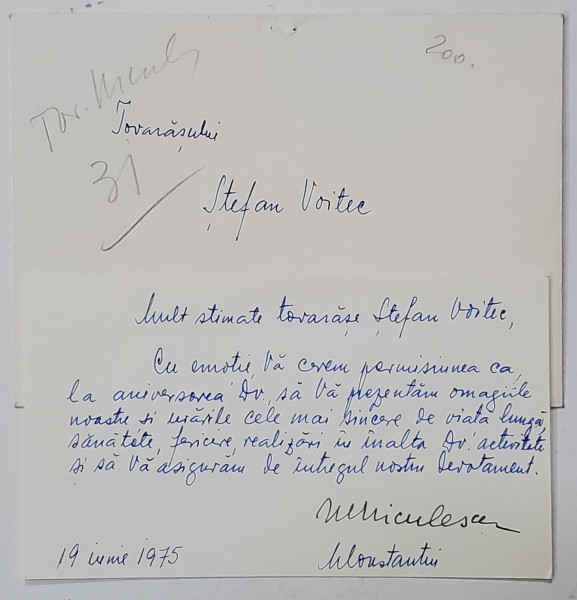 200.
Tor. Nicul
Tovarășului
31
Ștefan Voitec
Mult stimate tovarășe Ștefan Voitec,
Cu emotie, Vă cerem permisiunea ca,
la aniversarea Dv., să Vă prezentăm omagiile
noastre si urările cele mai sincere de viată lungă,
sănătate, fericire, realizări în înalta Dv. activitate
și să Vă asigurăm de întregul nostru devotament.
Niculescu
19 iunie 1975
Constantin